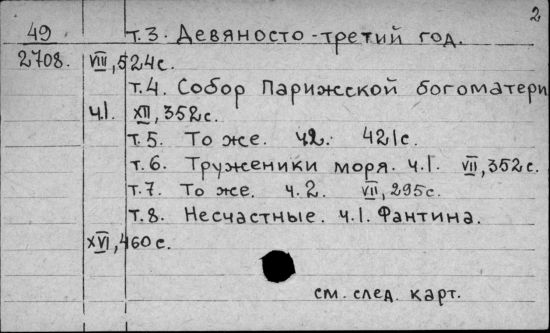 2
49 т.3. Девяносто-третий год.
2708. VIII, 524с.
т.4. Собор Парижской богоматери
ч.I. XII, 352с.
т.5. То же. ч.2. 421с.
т.6. Труженики моря. ч.I. VII, 352с.
т.7. То же. ч.2. VII, 295с.
т.8. Несчастные. ч.I. Фантина.
XVI, 460с.
см. след. карт.